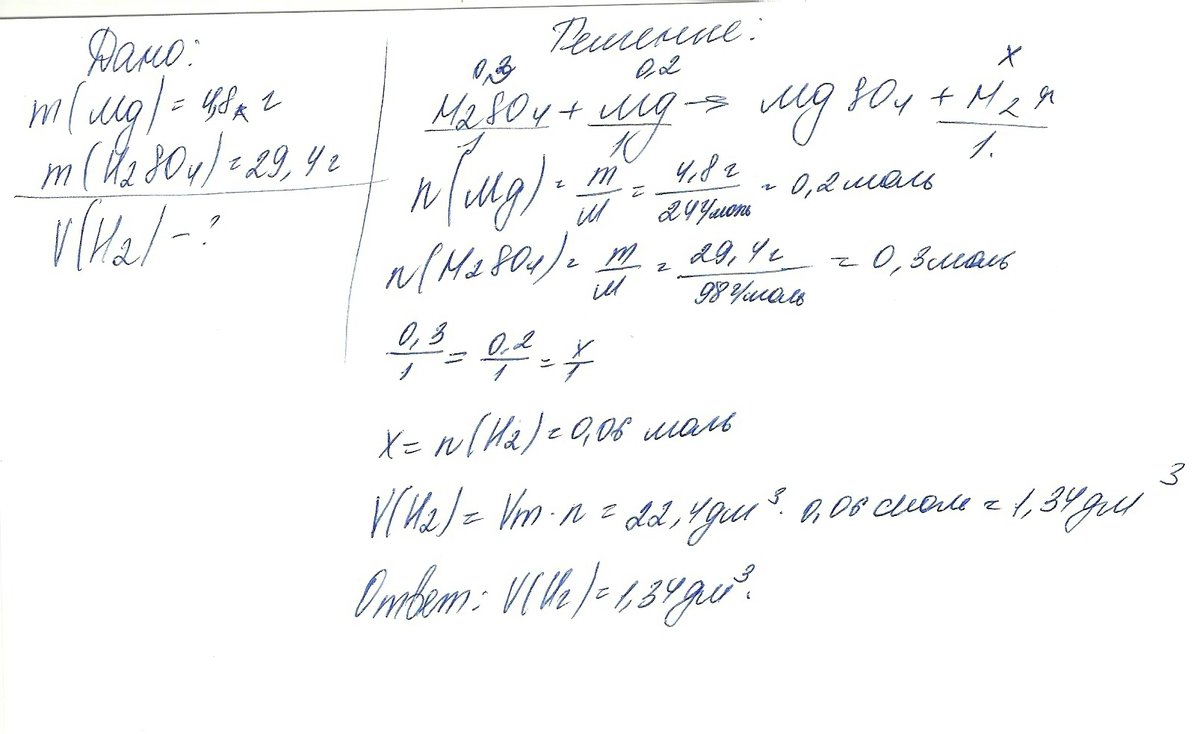 Дано:
m(Mg)=4,8 г
m(H2SO4)=29,4г
V(H2)-?
Решение:
0,3 0,2 x
H2SO4 + Mg → MgSO4 + H2 ↑
1 1 1.
n(Mg) = m/M = 4,8г/24г/моль = 0,2моль
n(H2SO4) = m/M = 29,4г/98г/моль = 0,3моль
0,3/1 = 0,2/1 = x/1
x = n(H2) = 0,06 моль
V(H2) = Vm·n = 22,4дм³ · 0,06 моль = 1,34дм³
Ответ: V(H2)=1,34дм³.